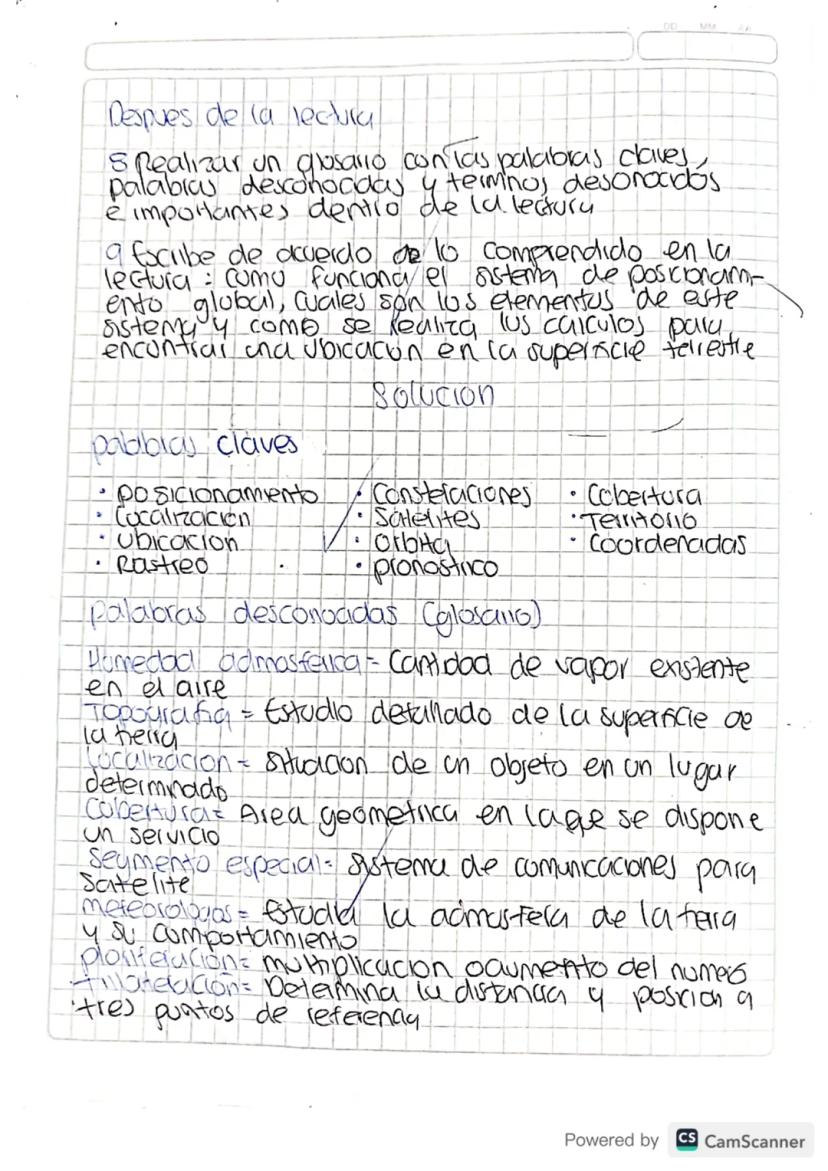 DD MM AA
Despues de la lectura
8 Realizar un glosario con las palabras claves,
palabras desconocidas y terminos desconocidos
e importantes dentro de la lectura
9 Escribe de acuerdo de lo comprendido en la
lectura: como funciona el sistema de posicionam-
ento global, cuales son los elementos de este
sistema y como se realiza los calculos para
encontrar una ubicacion en la superficie terrestre
Solucion
palabras claves
• posicionamiento • Constelaciones • Cobertura
• Localizacion • Satelites • Territorio
• Ubicacion • Orbita • Coordenadas
• Rastreo • pronostico
palabras desconocidas (glosario)
Humedad admosferica = Cantidad de vapor existente
en el aire
Topografia = Estudio detallado de la superficie de
la tierra
Localizacion = Situacion de un objeto en un lugar
determinado
Cobertura = Area geometrica en la que se dispone
un servicio
Segmento especial = sistema de comunicaciones para
Satelite
meteorologos = Estudia la admosfera de la tierra
y su comportamiento
proliferacion = multiplicacion o aumento del numero
trilateracion = Determina la distancia y posicion a
tres puntos de referencia
Powered by CS CamScanner